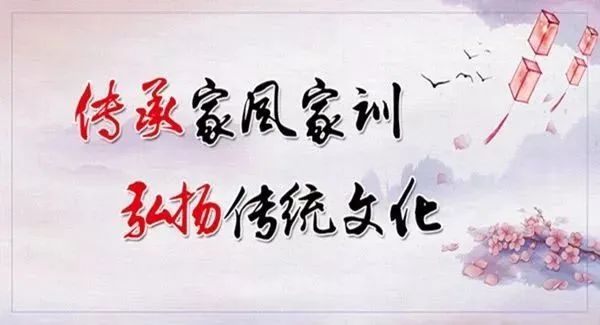 传承家风家训
弘扬传统文化